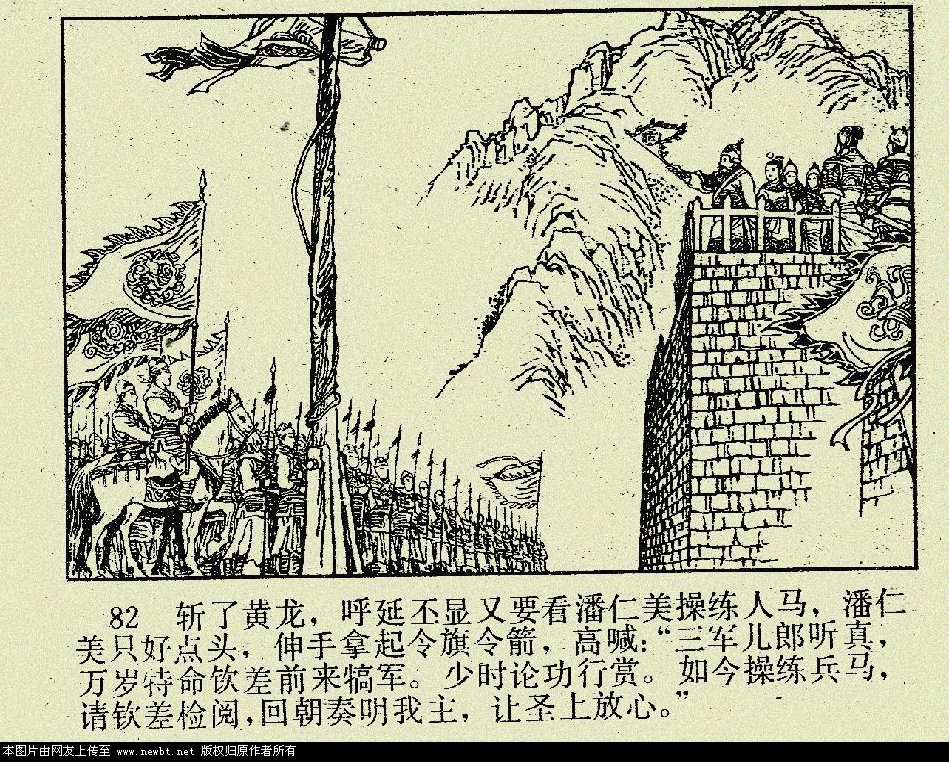 82 斩了黄龙，呼延丕显又要看潘仁美操练人马，潘仁
美只好点头，伸手拿起令旗令箭，高喊：“三军儿郎听真，
万岁特命钦差前来犒军。少时论功行赏。如今操练兵马，
请钦差检阅，回朝奏明我主，让圣上放心。”
本图片由网友上传至 www.newbt.net 版权归原作者所有